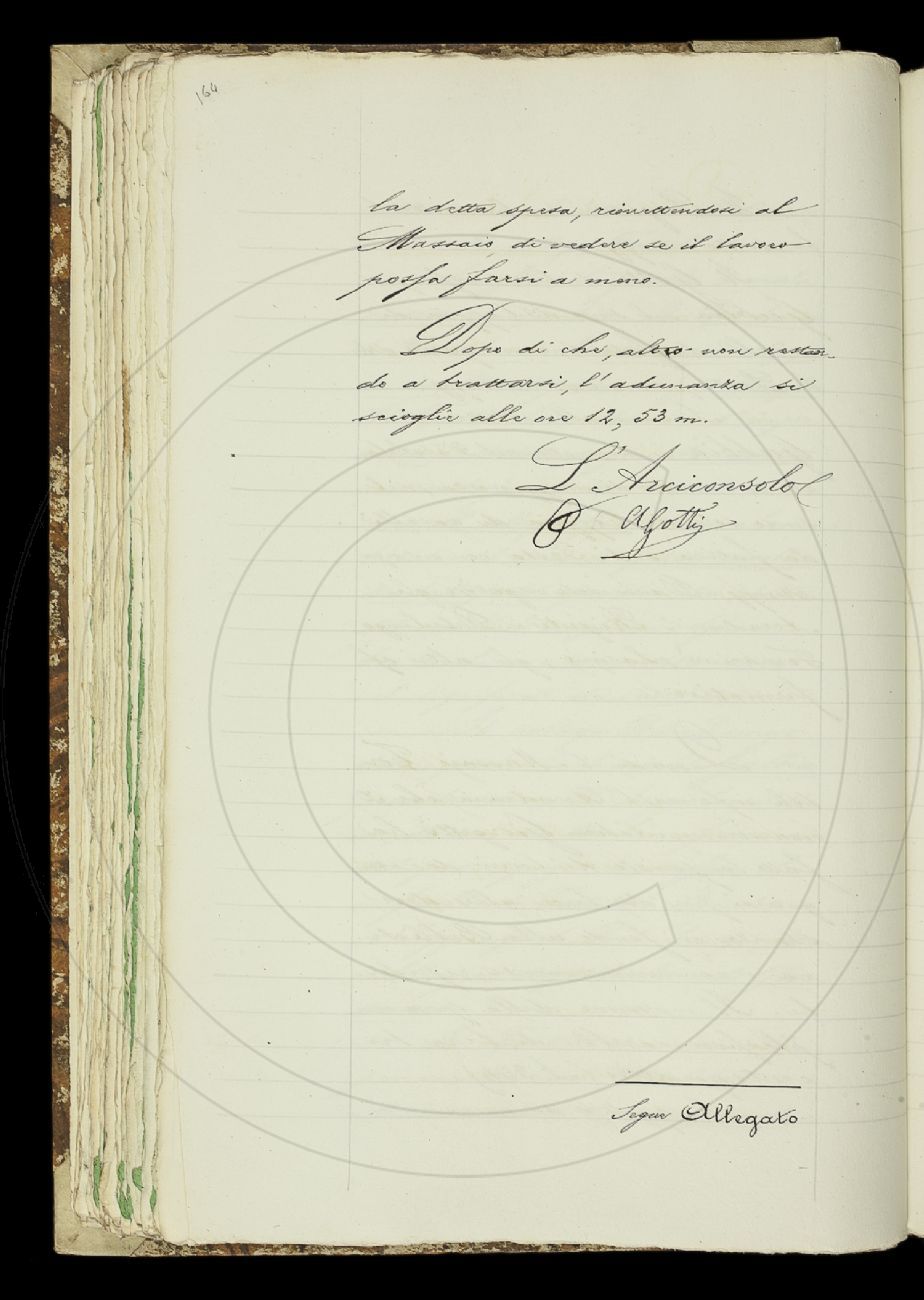 164
la detta spesa, rimettendosi al
Massaio di vedere se il lavoro
possa farsi a meno.
Dopo di che, altro non restan-
do a trattarsi, l'adunanza si
scioglie alle ore 12, 53 m.
L'Arciconsolo
AGotti
Segue Allegato